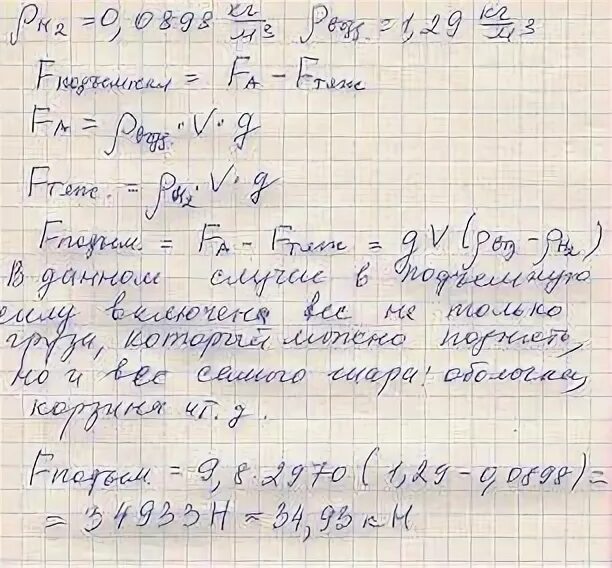 ρH₂ = 0,0898 кг/м³ ρвозд = 1,29 кг/м³
Fподъемная = FА − Fтяж
FА = ρвозд · V · g
Fтяж. = ρH₂ · V · g
Fподъм. = FА − Fтяж = gV(ρвзд − ρH₂)
В данном случае в подъемную
силу включена вес не только
груза, который можно поднять,
но и вес самого шара: оболочка,
корзина и т. д.
Fподъм. = 9,8·2970(1,29−0,0898)=
= 34933Н = 34,93 кН